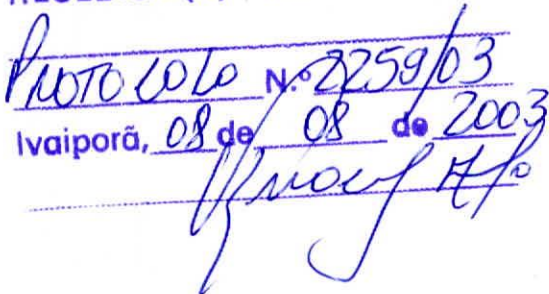 Protocolo N.º 2259/03
Ivaiporã, 08 de 08 de 2003